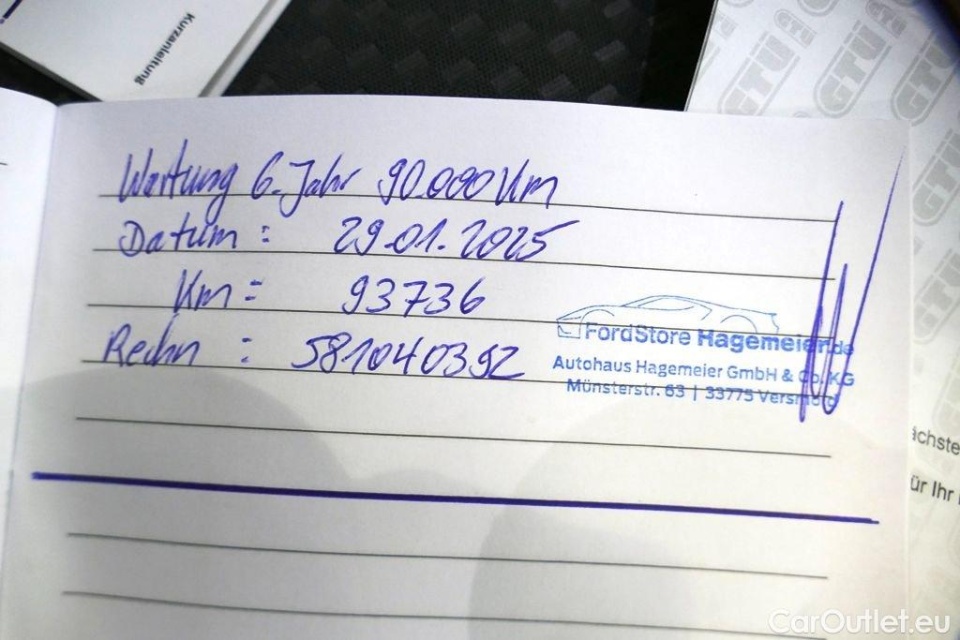 Kurzanleitung
GTÜ
Wartung 6. Jahr 90.000 Km
Datum : 29.01.2025
Km = 93736
Rechn : 581040392
FordStore Hagemeier.de
Autohaus Hagemeier GmbH & Co. KG
Münsterstr. 63 | 33775 Versmold
ächste
ür Ihr
CarOutlet.eu